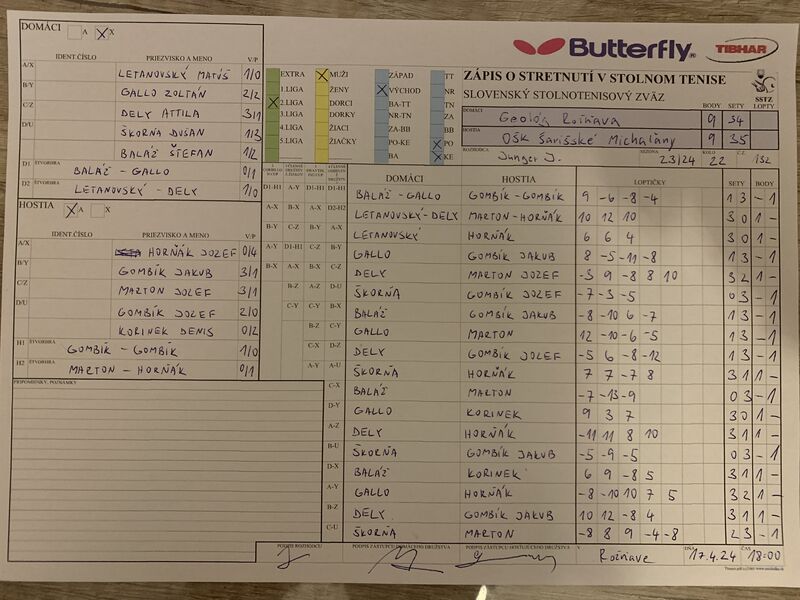 DOMÁCI A X X
IDENT.ČÍSLO PRIEZVISKO A MENO V/P
A/X LETANOVSKÝ MATÚŠ 1/0
B/Y GALLO ZOLTÁN 2/2
C/Z DELY ATTILA 3/1
D/U ŠKORŇA DUŠAN 1/3
BALÁŽ ŠTEFAN 1/2
D1 ŠTVORHRA BALÁŽ - GALLO 0/1
D2 ŠTVORHRA LETANOVSKÝ - DELY 1/0
HOSTIA X A X
IDENT.ČÍSLO PRIEZVISKO A MENO V/P
A/X HORŇÁK JOZEF 0/4
B/Y GOMBÍK JAKUB 3/1
C/Z MARTON JOZEF 3/1
D/U GOMBÍK JOZEF 2/0
KORINEK DENIS 0/2
H1 ŠTVORHRA GOMBÍK - GOMBÍK 1/0
H2 ŠTVORHRA MARTON - HORŇÁK 0/1
PRIPOMIENKY, POZNÁMKY
Butterfly TIBHAR
EXTRA X MUŽI ZÁPAD TT
1.LIGA ŽENY X VÝCHOD NR
X 2.LIGA DORCI BA-TT TN
3.LIGA DORKY NR-TN ZA
4.LIGA ŽIACI ZA-BB BB
5.LIGA ŽIAČKY PO-KE X PO
BA X KE
ZÁPIS O STRETNUTÍ V STOLNOM TENISE
SLOVENSKÝ STOLNOTENISOVÝ ZVÄZ
SSTZ
BODY SETY LOPTY
DOMÁCI Geológ Rožňava 9 34
HOSTIA OŠK Šarišské Michaľany 9 35
ROZHODCA Junger J. SEZONA 23/24 KOLO 22 Č.Z. 132
DOMÁCI HOSTIA LOPTIČKY SETY BODY
D1-H1 A-Y D1-H1 D1-H1 BALÁŽ - GALLO GOMBÍK - GOMBÍK 9 -6 -8 -4 1 3 - 1
A-X B-X A-X D2-H2 LETANOVSKÝ-DELY MARTON-HORŇÁK 10 12 10 3 0 1 -
B-Y C-Z B-Y A-X LETANOVSKÝ HORŇÁK 6 6 4 3 0 1 -
A-Y D1-H1 C-Z B-Y GALLO GOMBÍK JAKUB 8 -5 -11 -8 1 3 - 1
B-X A-X B-X C-Z DELY MARTON JOZEF -3 9 -8 8 10 3 2 1 -
B-Z A-Z D-U ŠKORŇA GOMBÍK JOZEF -7 -3 -5 0 3 - 1
C-Y C-Y B-X BALÁŽ GOMBÍK JAKUB -8 -10 6 -7 1 3 - 1
B-Z C-Y GALLO MARTON 12 -10 -6 -5 1 3 - 1
C-X D-Z DELY GOMBÍK JOZEF -5 6 -8 -12 1 3 - 1
A-Y A-U ŠKORŇA HORŇÁK 7 7 -7 8 3 1 1 -
C-X BALÁŽ MARTON -7 -13 -9 0 3 - 1
D-Y GALLO KORINEK 9 3 7 3 0 1 -
A-Z DELY HORŇÁK -11 11 8 10 3 1 1 -
B-U ŠKORŇA GOMBÍK JAKUB -5 -9 -5 0 3 - 1
D-X BALÁŽ KORINEK 6 9 -8 5 3 1 1 -
A-Y GALLO HORŇÁK -8 -10 10 7 5 3 2 1 -
B-Z DELY GOMBÍK JAKUB 10 12 -8 4 3 1 1 -
C-U ŠKORŇA MARTON -8 8 9 -4 -8 2 3 - 1
PODPIS ROZHODCU PODPIS ZÁSTUPCU DOMÁCEHO DRUŽSTVA PODPIS ZÁSTUPCU HOSŤUJÚCEHO DRUŽSTVA V Rožňave DŇA 17.4.24 O 18:00